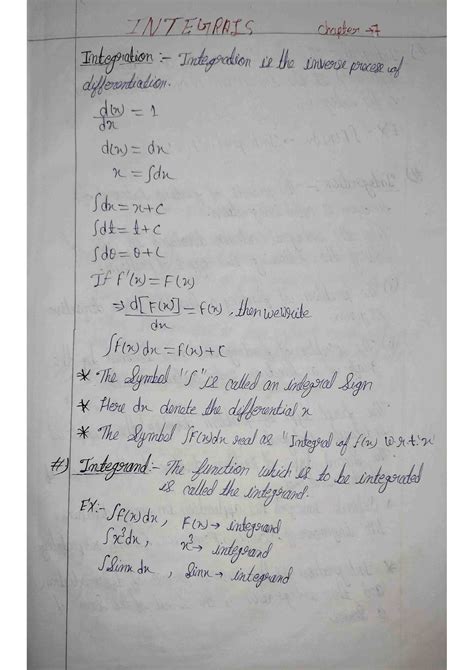 INTEGRALS Chapter-7
Integration :- Integration is the inverse process of
differentiation.
d(x)/dx = 1
d(x) = dx
x = ∫dx
∫dx = x+c
∫dt = t+c
∫dθ = θ+c
If f'(x) = F(x)
⇒ d[F(x)]/dx = f(x), then we write
∫f(x) dx = F(x)+c
* The Symbol "∫" is called an integral Sign
* Here dx denote the differential x
* The Symbol ∫F(x)dx read as "Integral of f(x) w.r.t x
#) Integrand :- The function which is to be integrated
is called the integrand.
EX:- ∫f(x)dx, F(x) → integrand
∫x³dx, x³ → integrand
∫Sinx dx, Sinx → integrand